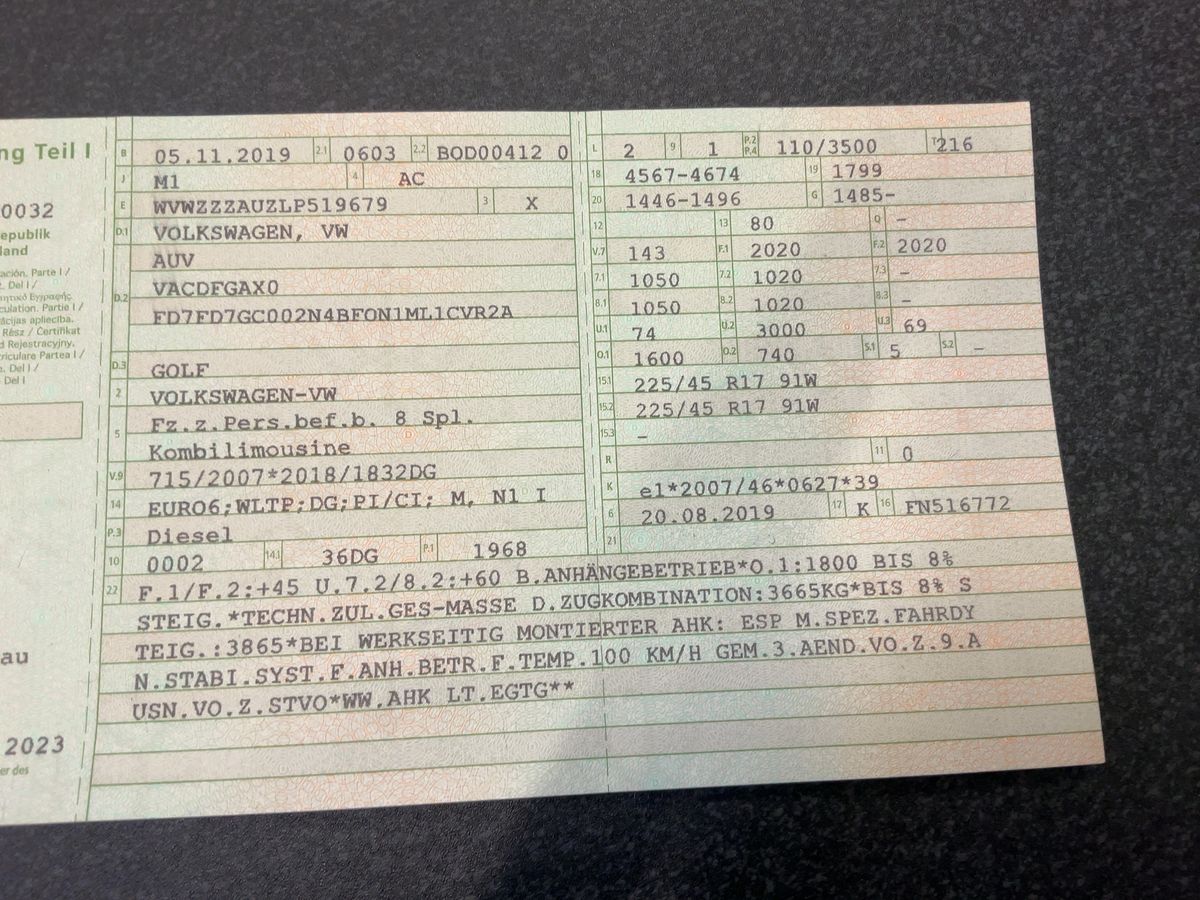 ng Teil I
0032
epublik
land
ación. Parte I /
. Del I /
culation. Partie I /
Rész / Certifikat
d Rejestracyjny.
riculare Partea I /
. Del I /
Del I
au
2023
er des
B 05.11.2019 2.1 0603 2.2 BOD00412 0
J M1 4 AC
E WVWZZZAUZLP519679 3 X
D.1 VOLKSWAGEN, VW
AUV
D.2 VACDFGAX0
FD7FD7GC002N4BFON1ML1CVR2A
D.3 GOLF
2 VOLKSWAGEN-VW
5 Fz.z.Pers.bef.b. 8 Spl.
Kombilimousine
V.9 715/2007*2018/1832DG
14 EURO6;WLTP;DG;PI/CI; M, N1 I
P.3 Diesel
10 0002 14.1 36DG P.1 1968
L 2 9 1 P.2 P.4 110/3500 T 216
18 4567-4674 19 1799
20 1446-1496 G 1485-
12 13 80 Q -
V.7 143 F.1 2020 F.2 2020
7.1 1050 7.2 1020 7.3 -
8.1 1050 8.2 1020 8.3 -
U.1 74 U.2 3000 U.3 69
O.1 1600 O.2 740 S.1 5 S.2 -
15.1 225/45 R17 91W
15.2 225/45 R17 91W
15.3 -
R 11 0
K e1*2007/46*0627*39
6 20.08.2019 17 K 16 FN516772
21
22 F.1/F.2:+45 U.7.2/8.2:+60 B.ANHÄNGEBETRIEB*O.1:1800 BIS 8%
STEIG.*TECHN.ZUL.GES-MASSE D.ZUGKOMBINATION:3665KG*BIS 8% S
TEIG.:3865*BEI WERKSEITIG MONTIERTER AHK: ESP M.SPEZ.FAHRDY
N.STABI.SYST.F.ANH.BETR.F.TEMP.100 KM/H GEM.3.AEND.VO.Z.9.A
USN.VO.Z.STVO*WW.AHK LT.EGTG**